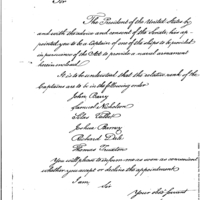 Sir
The President of the United States by
and with the advice and consent of the Senate has ap-
pointed you to be a Captain of one of the ships to be provided
in pursuance of the Act to provide a naval armament
herein enclosed.
It is to be understood that the relative rank of the
Captains are to be in the following order
John Barry
Samuel Nicholson
Silas Talbot
Joshua Barney
Richard Dale
Thomas Truxtun
You will please to inform me as soon as convenient
whether you accept or decline the appointment
I am
Sir
Your obt servant